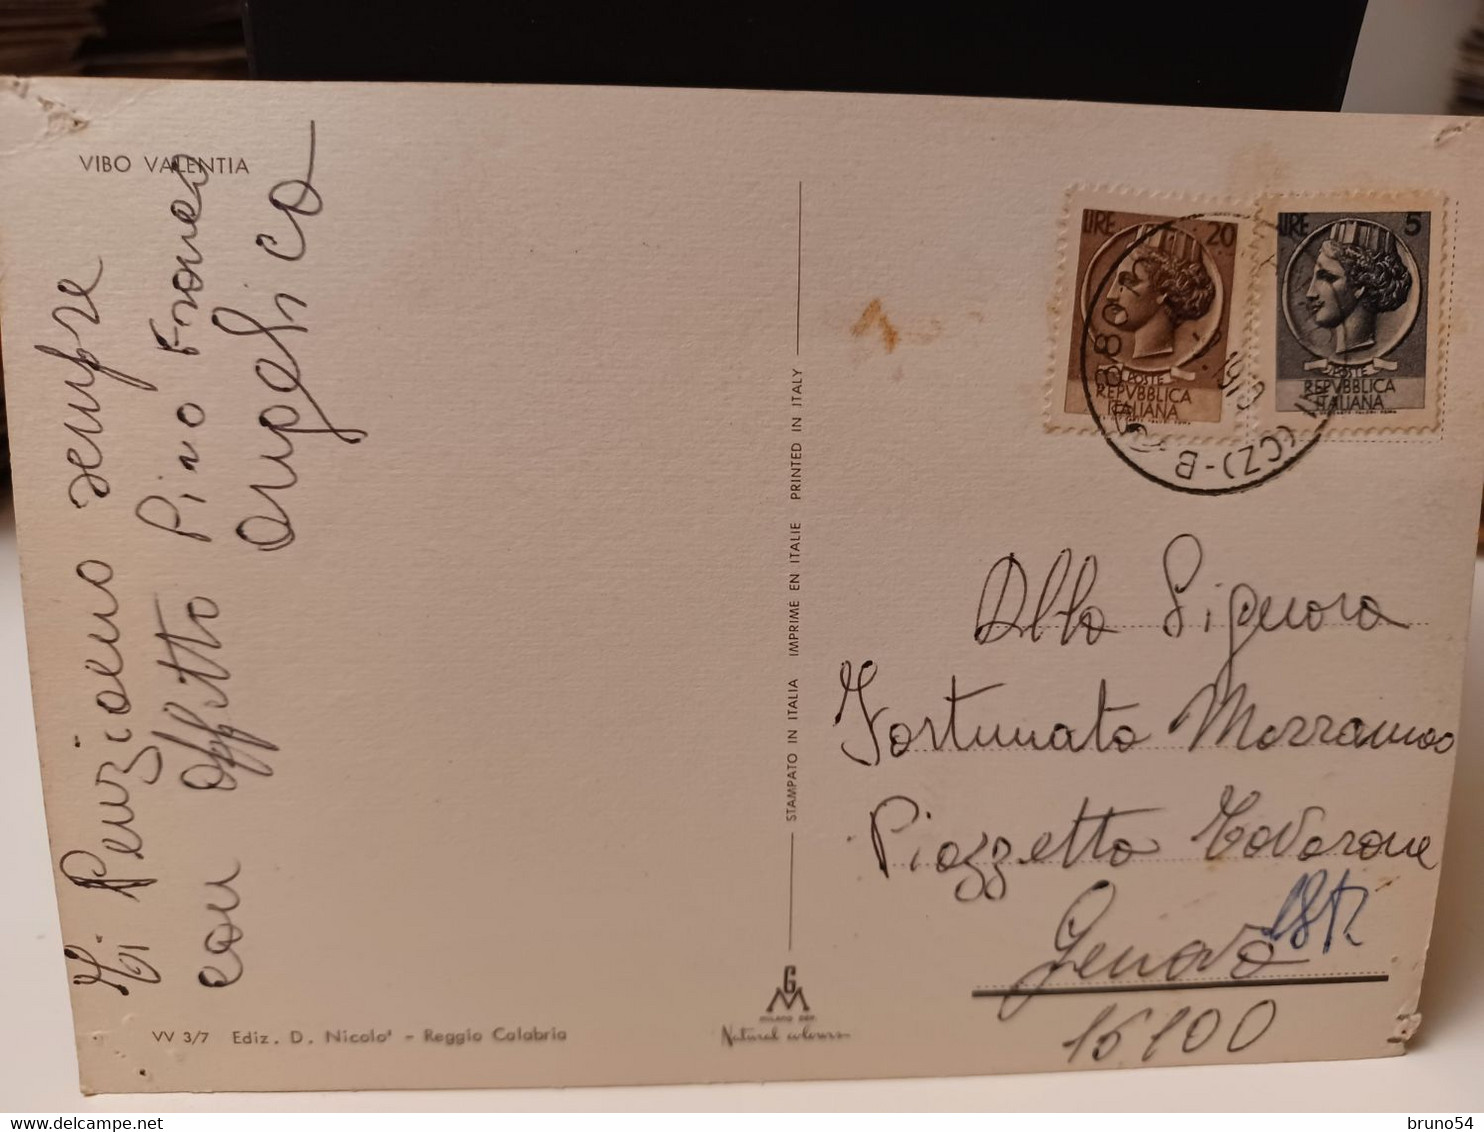 VIBO VALENTIA
Ti Penziamo sempre
con affetto Pino Franco
angelica
STAMPATO IN ITALIA IMPRIME EN ITALIE PRINTED IN ITALY
LIRE 20
POSTE
REPVBBLICA
ITALIANA
LIRE 5
POSTE
REPVBBLICA
ITALIANA
(CZ)-B
Alla Signora
Fortunata Mazzamao
Piazzetta Tavarone
Genova
16100
GM
Natural colours
VV 3/7 Ediz. D. Nicolo' - Reggio Calabria
bruno54